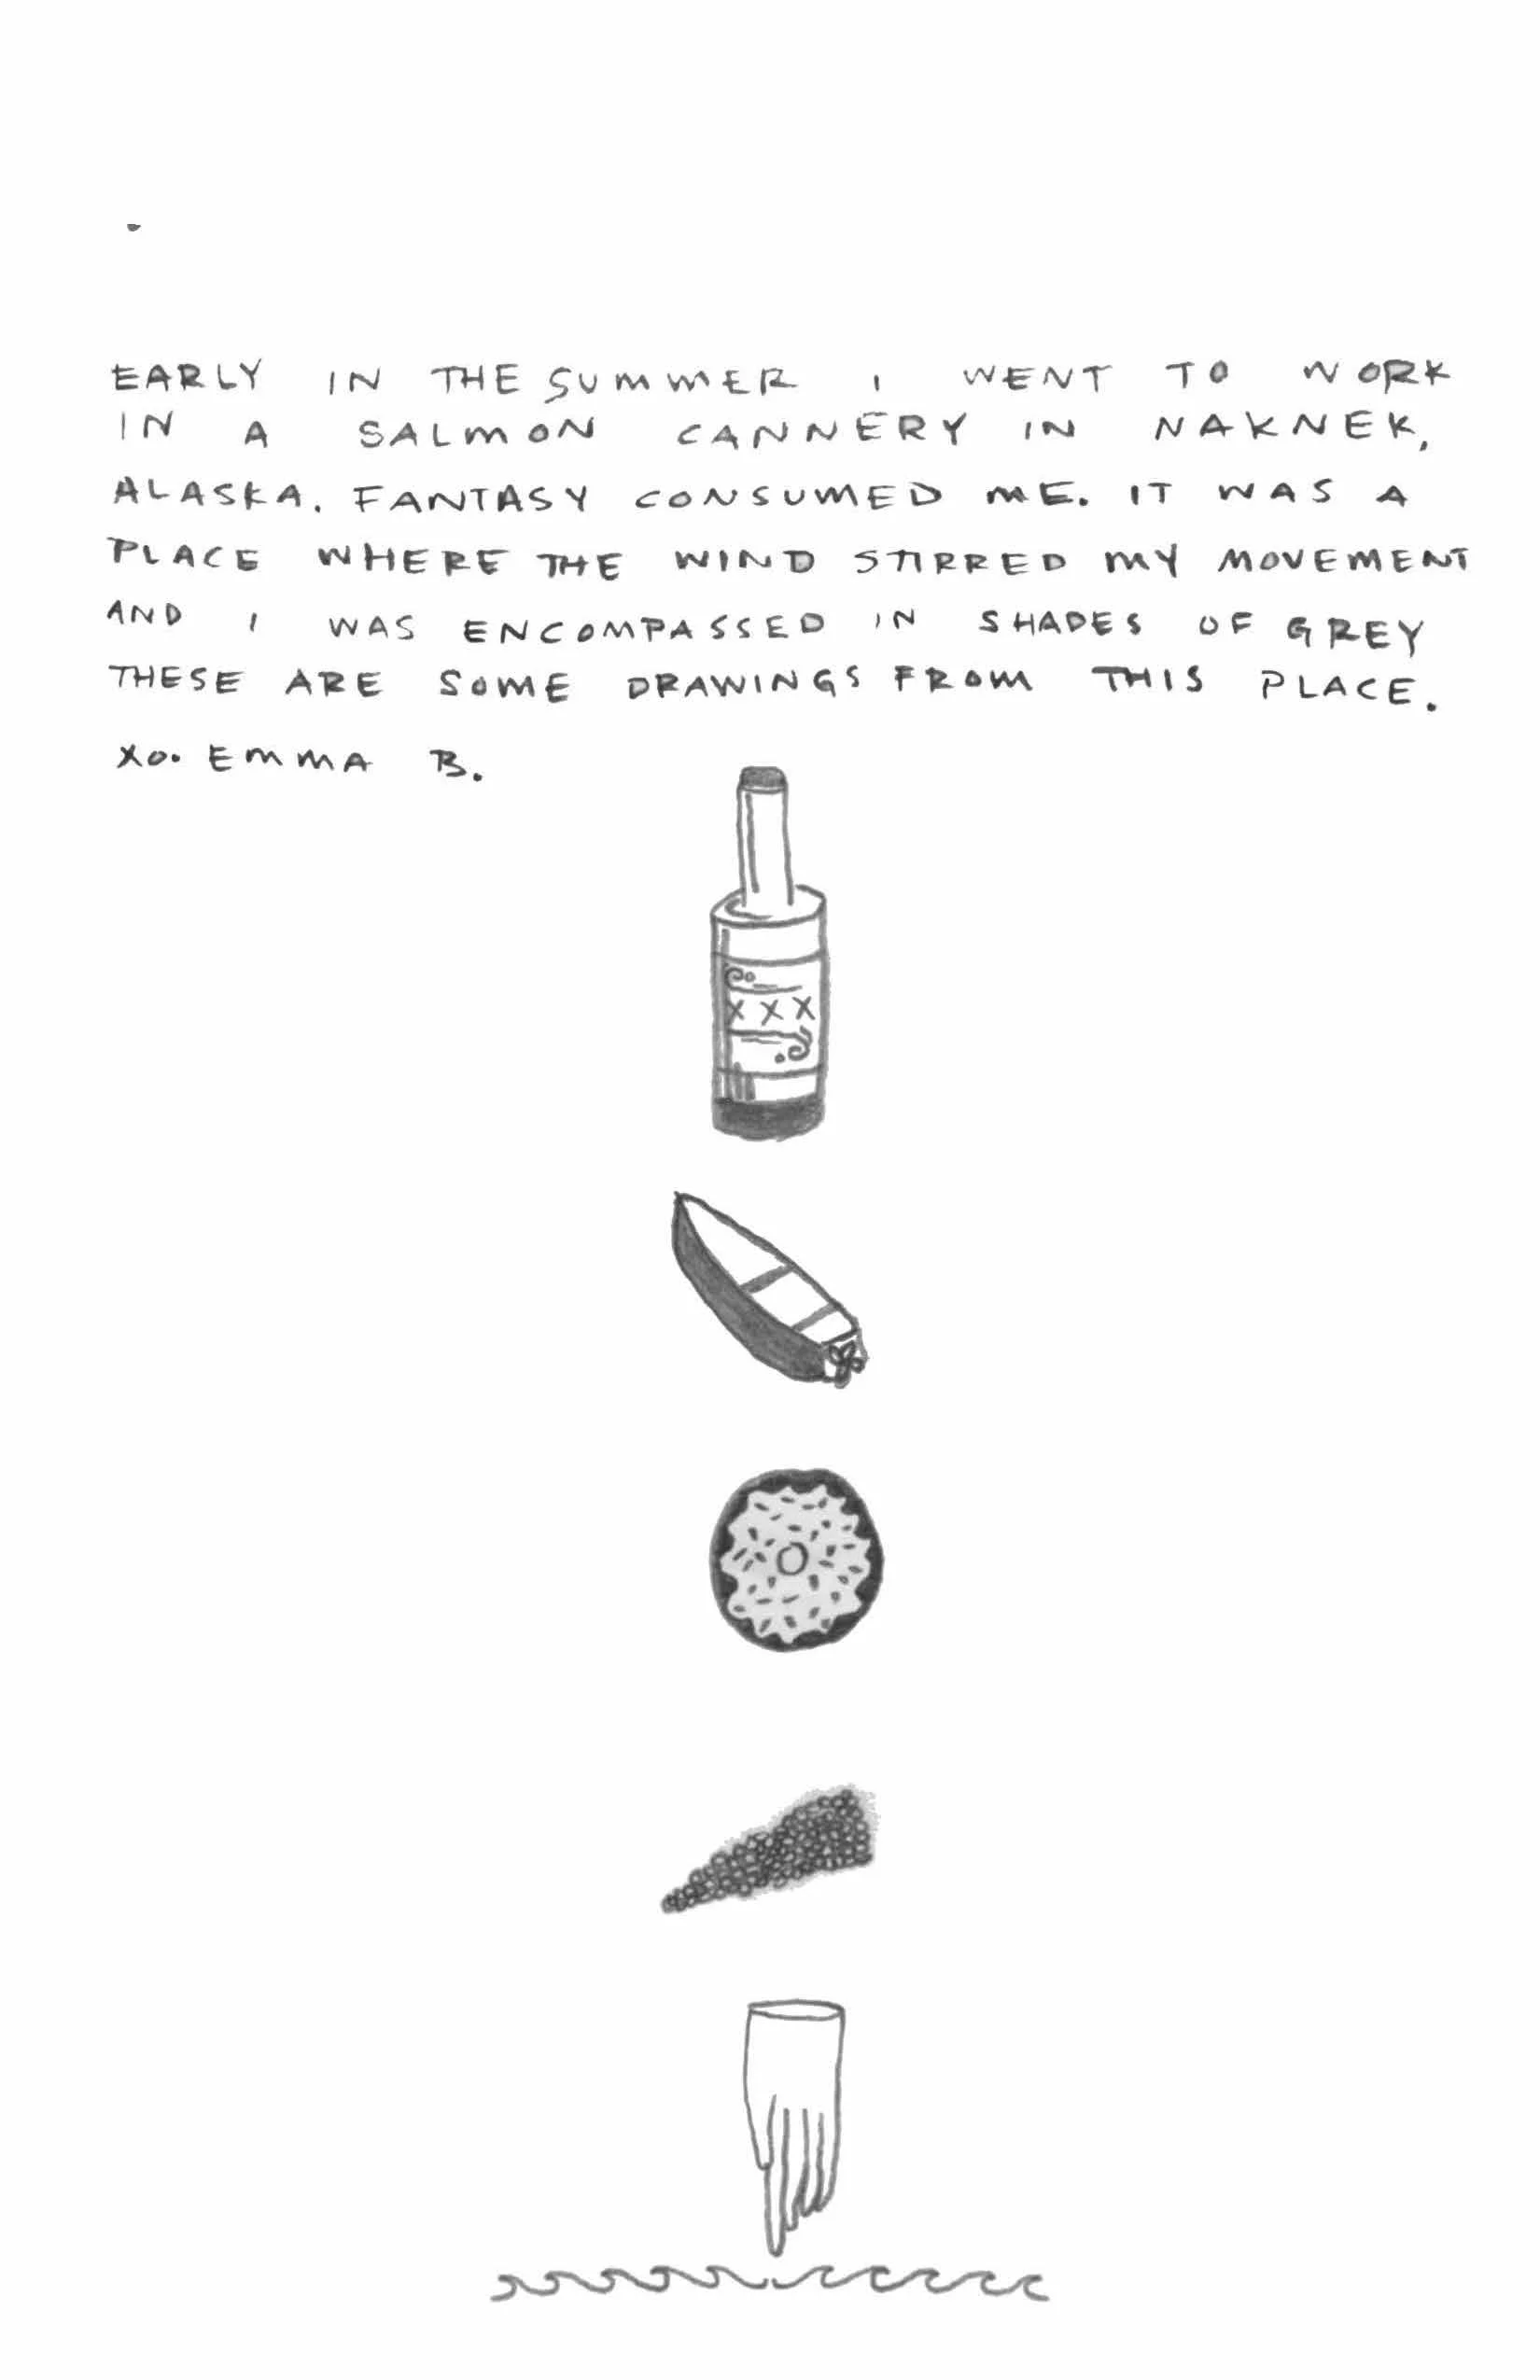 EARLY IN THE SUMMER I WENT TO WORK
IN A SALMON CANNERY IN NAKNEK,
ALASKA. FANTASY CONSUMED ME. IT WAS A
PLACE WHERE THE WIND STIRRED MY MOVEMENT
AND I WAS ENCOMPASSED IN SHADES OF GREY
THESE ARE SOME DRAWINGS FROM THIS PLACE.
XO. EMMA B.
XXX